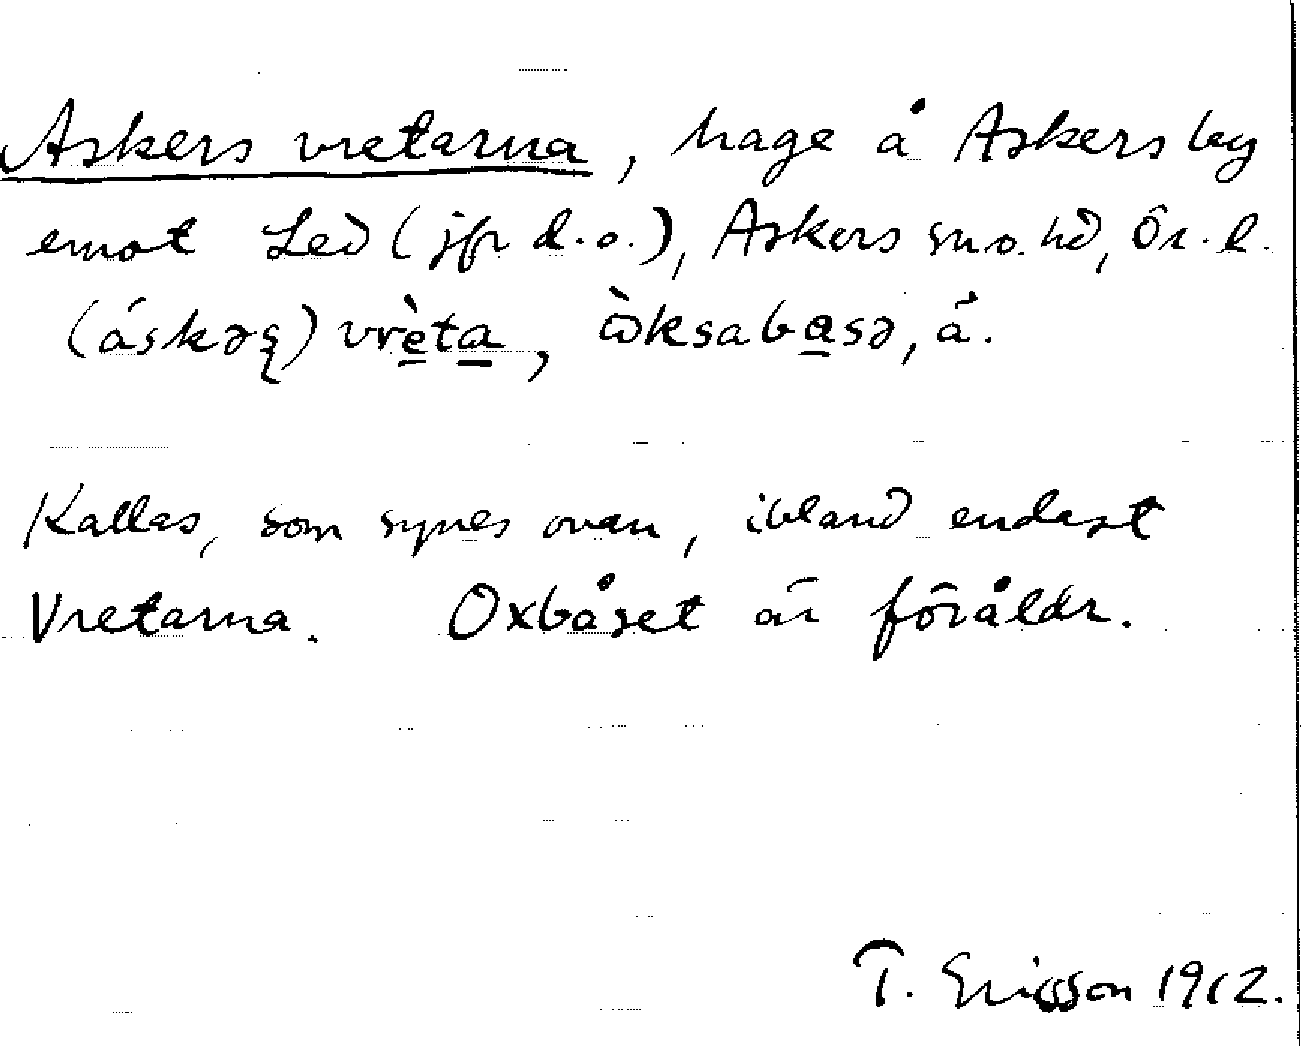 Askers vretarna, hage å Askersby
emot Led (jfr d.o.), Askers sn o. hd, Ör. l.
(áskəȿ) vrèta, ɷ̀ksabasə, á.
Kallas, som synes ovan, ibland endast
Vretarna. Oxbåset är föråldr.
T. Ericsson 1912.